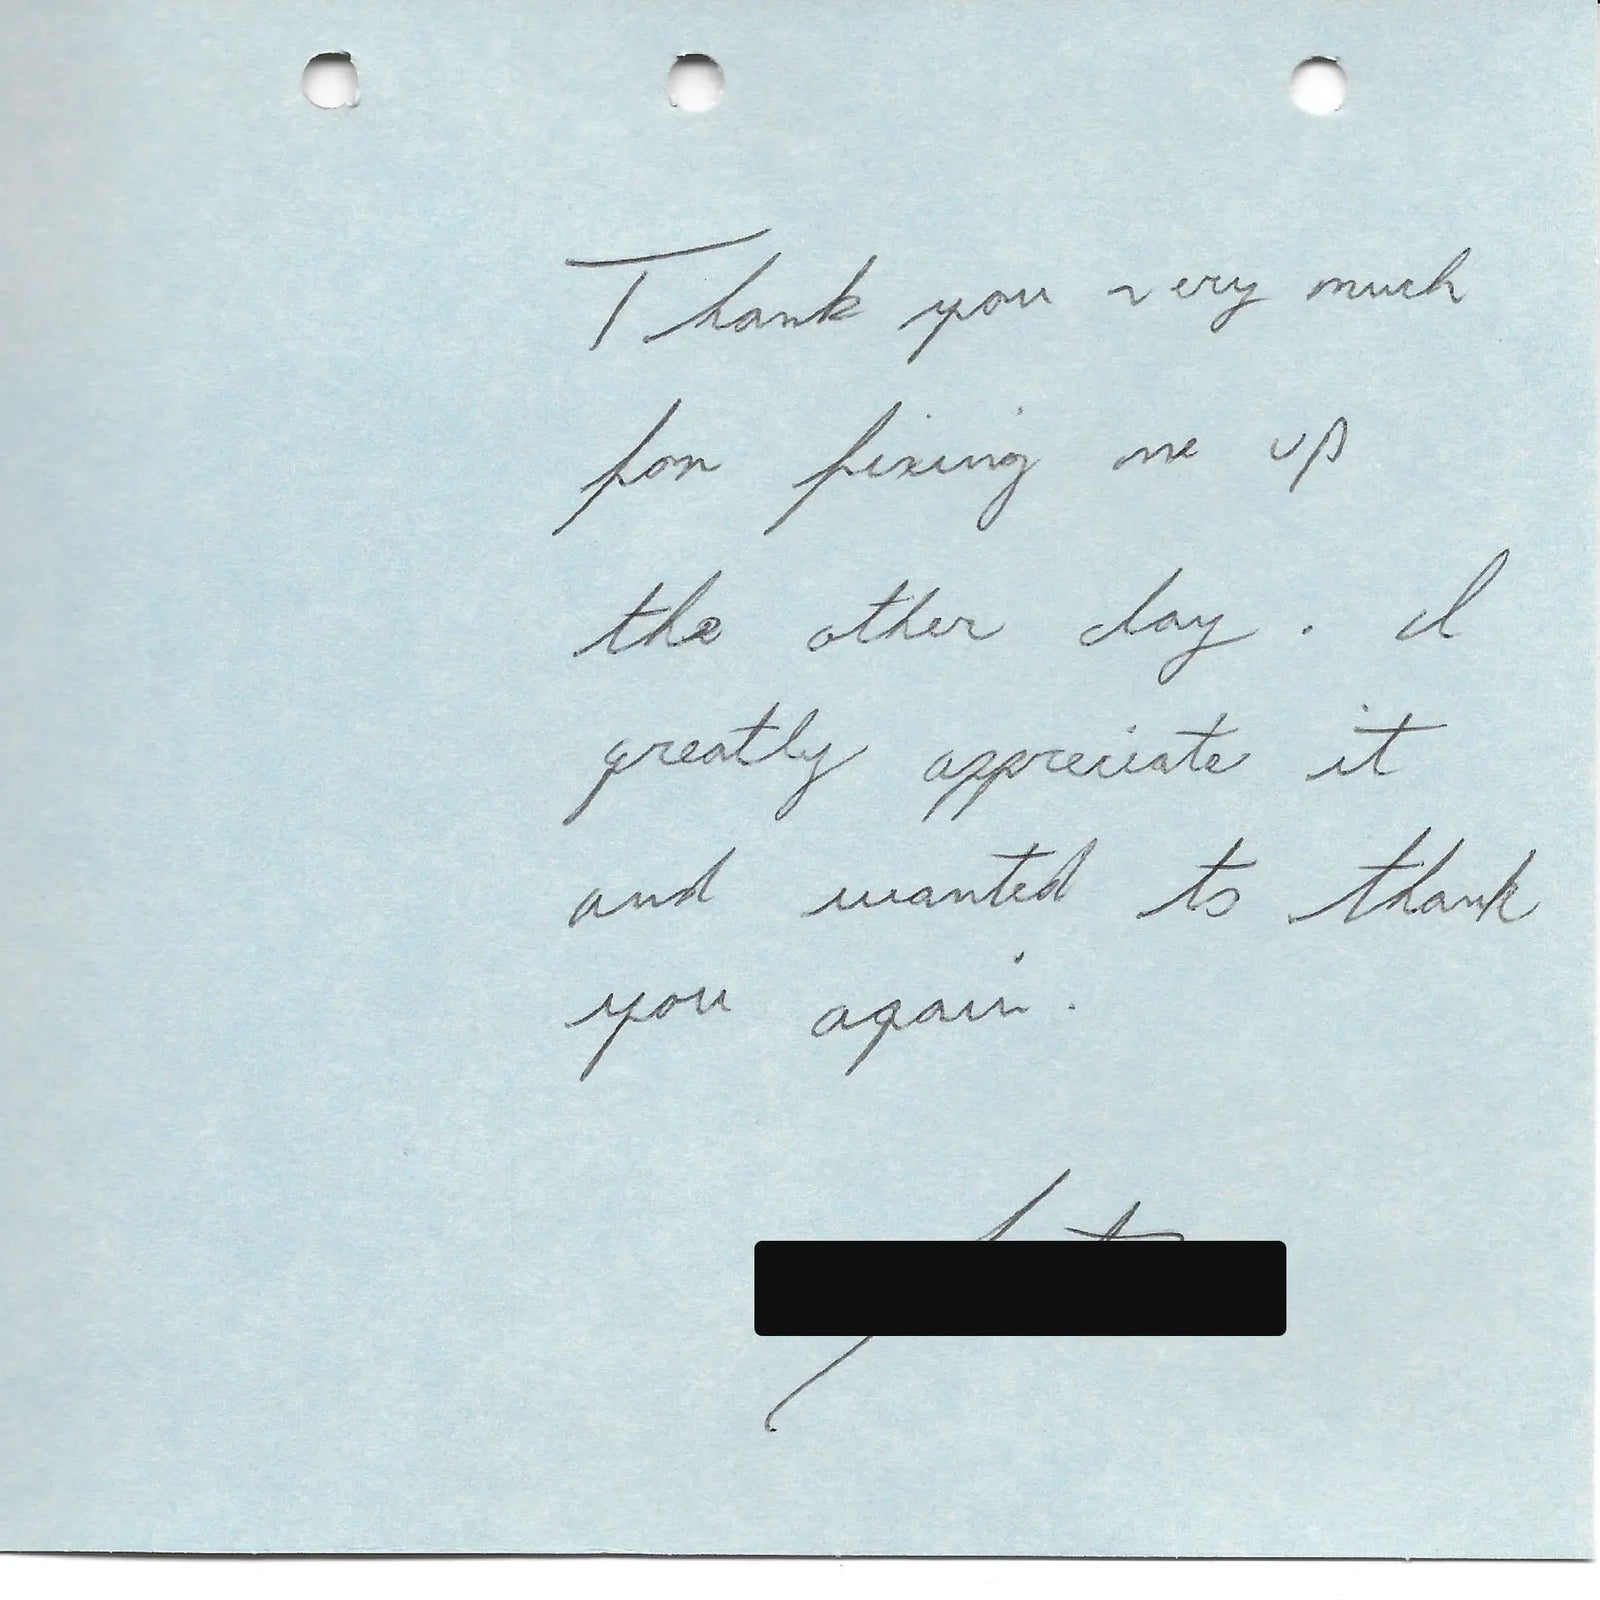 Thank you very much
for fixing me up
the other day. I
greatly appreciate it
and wanted to thank
you again.